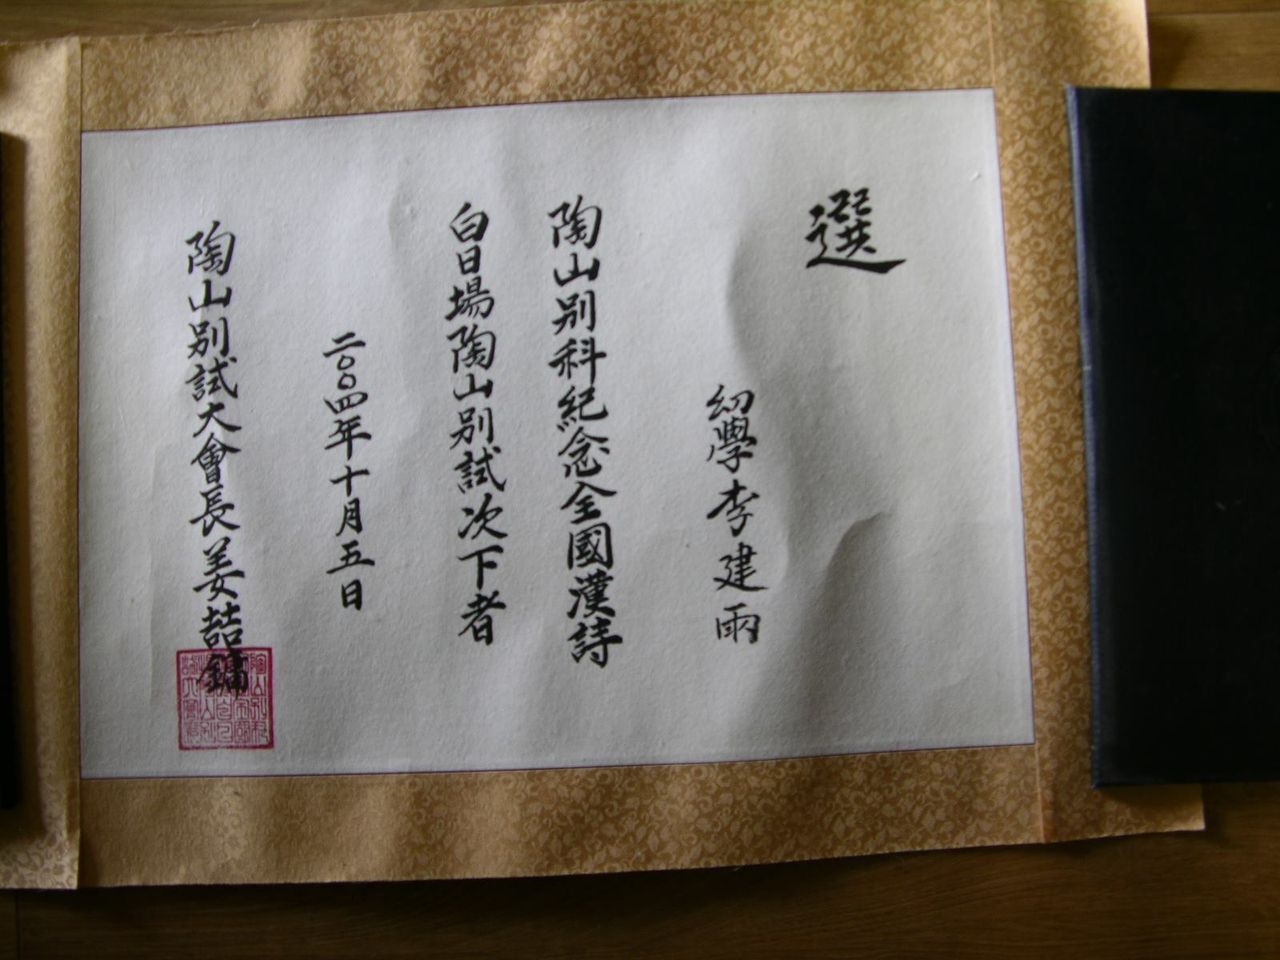 選
幼學李建雨
陶山別科紀念全國漢詩
白日場陶山別試次下者
二〇〇四年十月五日
陶山別試大會長姜喆鏞